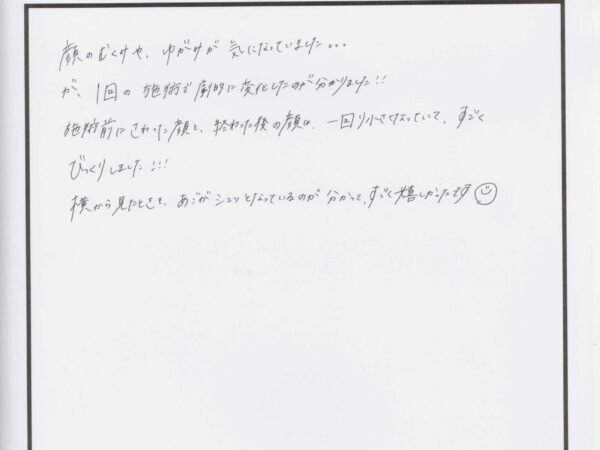 顔のむくみや、ゆがみが 気になっていました...
が、1回の 施術で劇的に変化したのが分かりました!!
施術前にさわった顔と、終わった後の顔は、一回り小さくなっていて、すごく
びっくりしました!!!
横から見たときも、あごがシュッとなっているのが分かって、すごく嬉しかったです☺